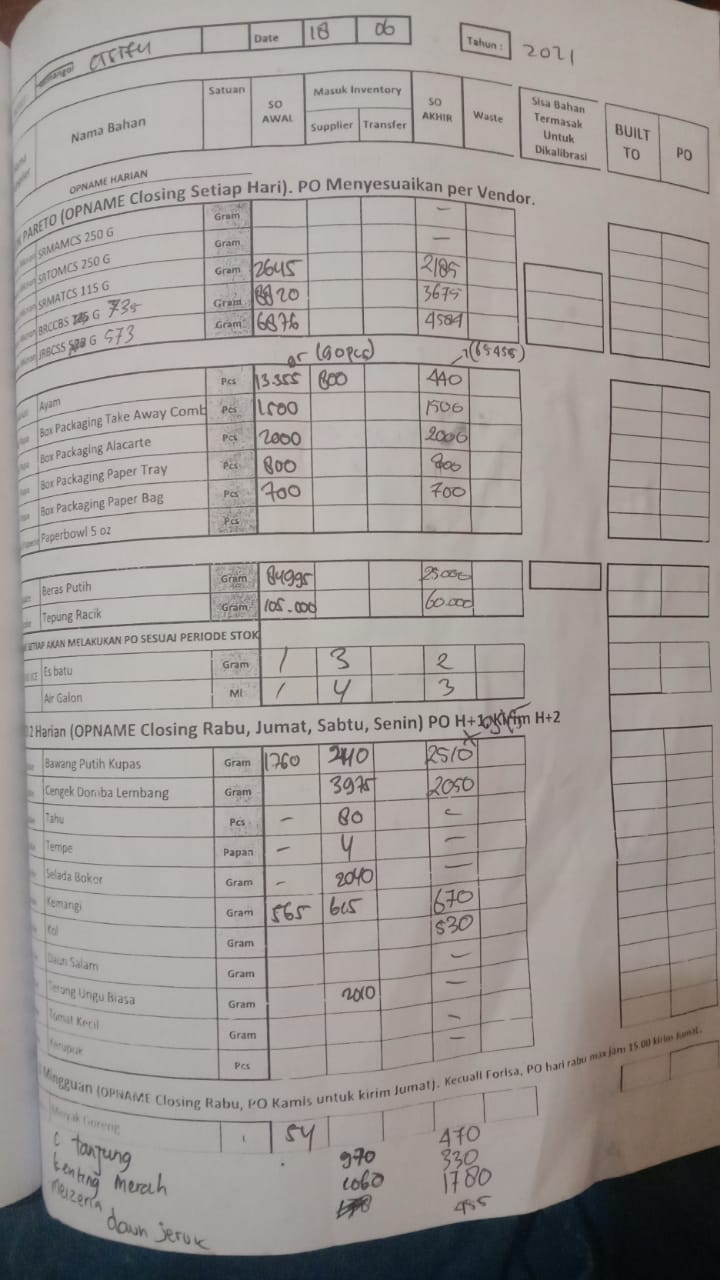 Date 18 06 Tahun : 2021
Nama Bahan Satuan SO AWAL Masuk Inventory Supplier Transfer SO AKHIR Waste Sisa Bahan Termasak Untuk Dikalibrasi BUILT TO PO
OPNAME HARIAN
PARETO (OPNAME Closing Setiap Hari). PO Menyesuaikan per Vendor.
SRMAMCS 250 G Gram —
SRTOMCS 250 G Gram —
SRMATCS 115 G Gram 2645 2185
BRCCBS G 735 Gram 8820 3675
JRBCSS G 573 Gram 6876 4584
gr (90pcs)
Ayam Pcs 13.355 800 440
Box Packaging Take Away Comb Pcs 1500 1500
Box Packaging Alacarte Pcs 2000 2000
Box Packaging Paper Tray Pcs 800 800
Box Packaging Paper Bag Pcs 700 700
Paperbowl 5 oz Pcs
Beras Putih Gram 84995 25000
Tepung Racik Gram 105.000 60.000
SETIAP AKAN MELAKUKAN PO SESUAI PERIODE STOK
Es batu Gram 1 3 2
Air Galon Ml 1 4 3
2 Harian (OPNAME Closing Rabu, Jumat, Sabtu, Senin) PO H+1 Kirim H+2
Bawang Putih Kupas Gram 1760 2510
Cengek Domba Lembang Gram 3975 2050
Tahu Pcs - 80
Tempe Papan - 4 —
Selada Bokor Gram - 2040 —
Kemangi Gram 565 615 670
Kol Gram 530
Daun Salam Gram —
Terong Ungu Biasa Gram 2010
Tomat Kecil Gram —
Kerupuk Pcs —
Mingguan (OPNAME Closing Rabu, PO Kamis untuk kirim Jumat). Kecuali Forisa, PO hari rabu max jam 15.00 kirim Jumat.
Minyak Goreng 54
C tanjung 970 470
kenting Merah 1060 330
Meizena 1780
daun jeruk 455